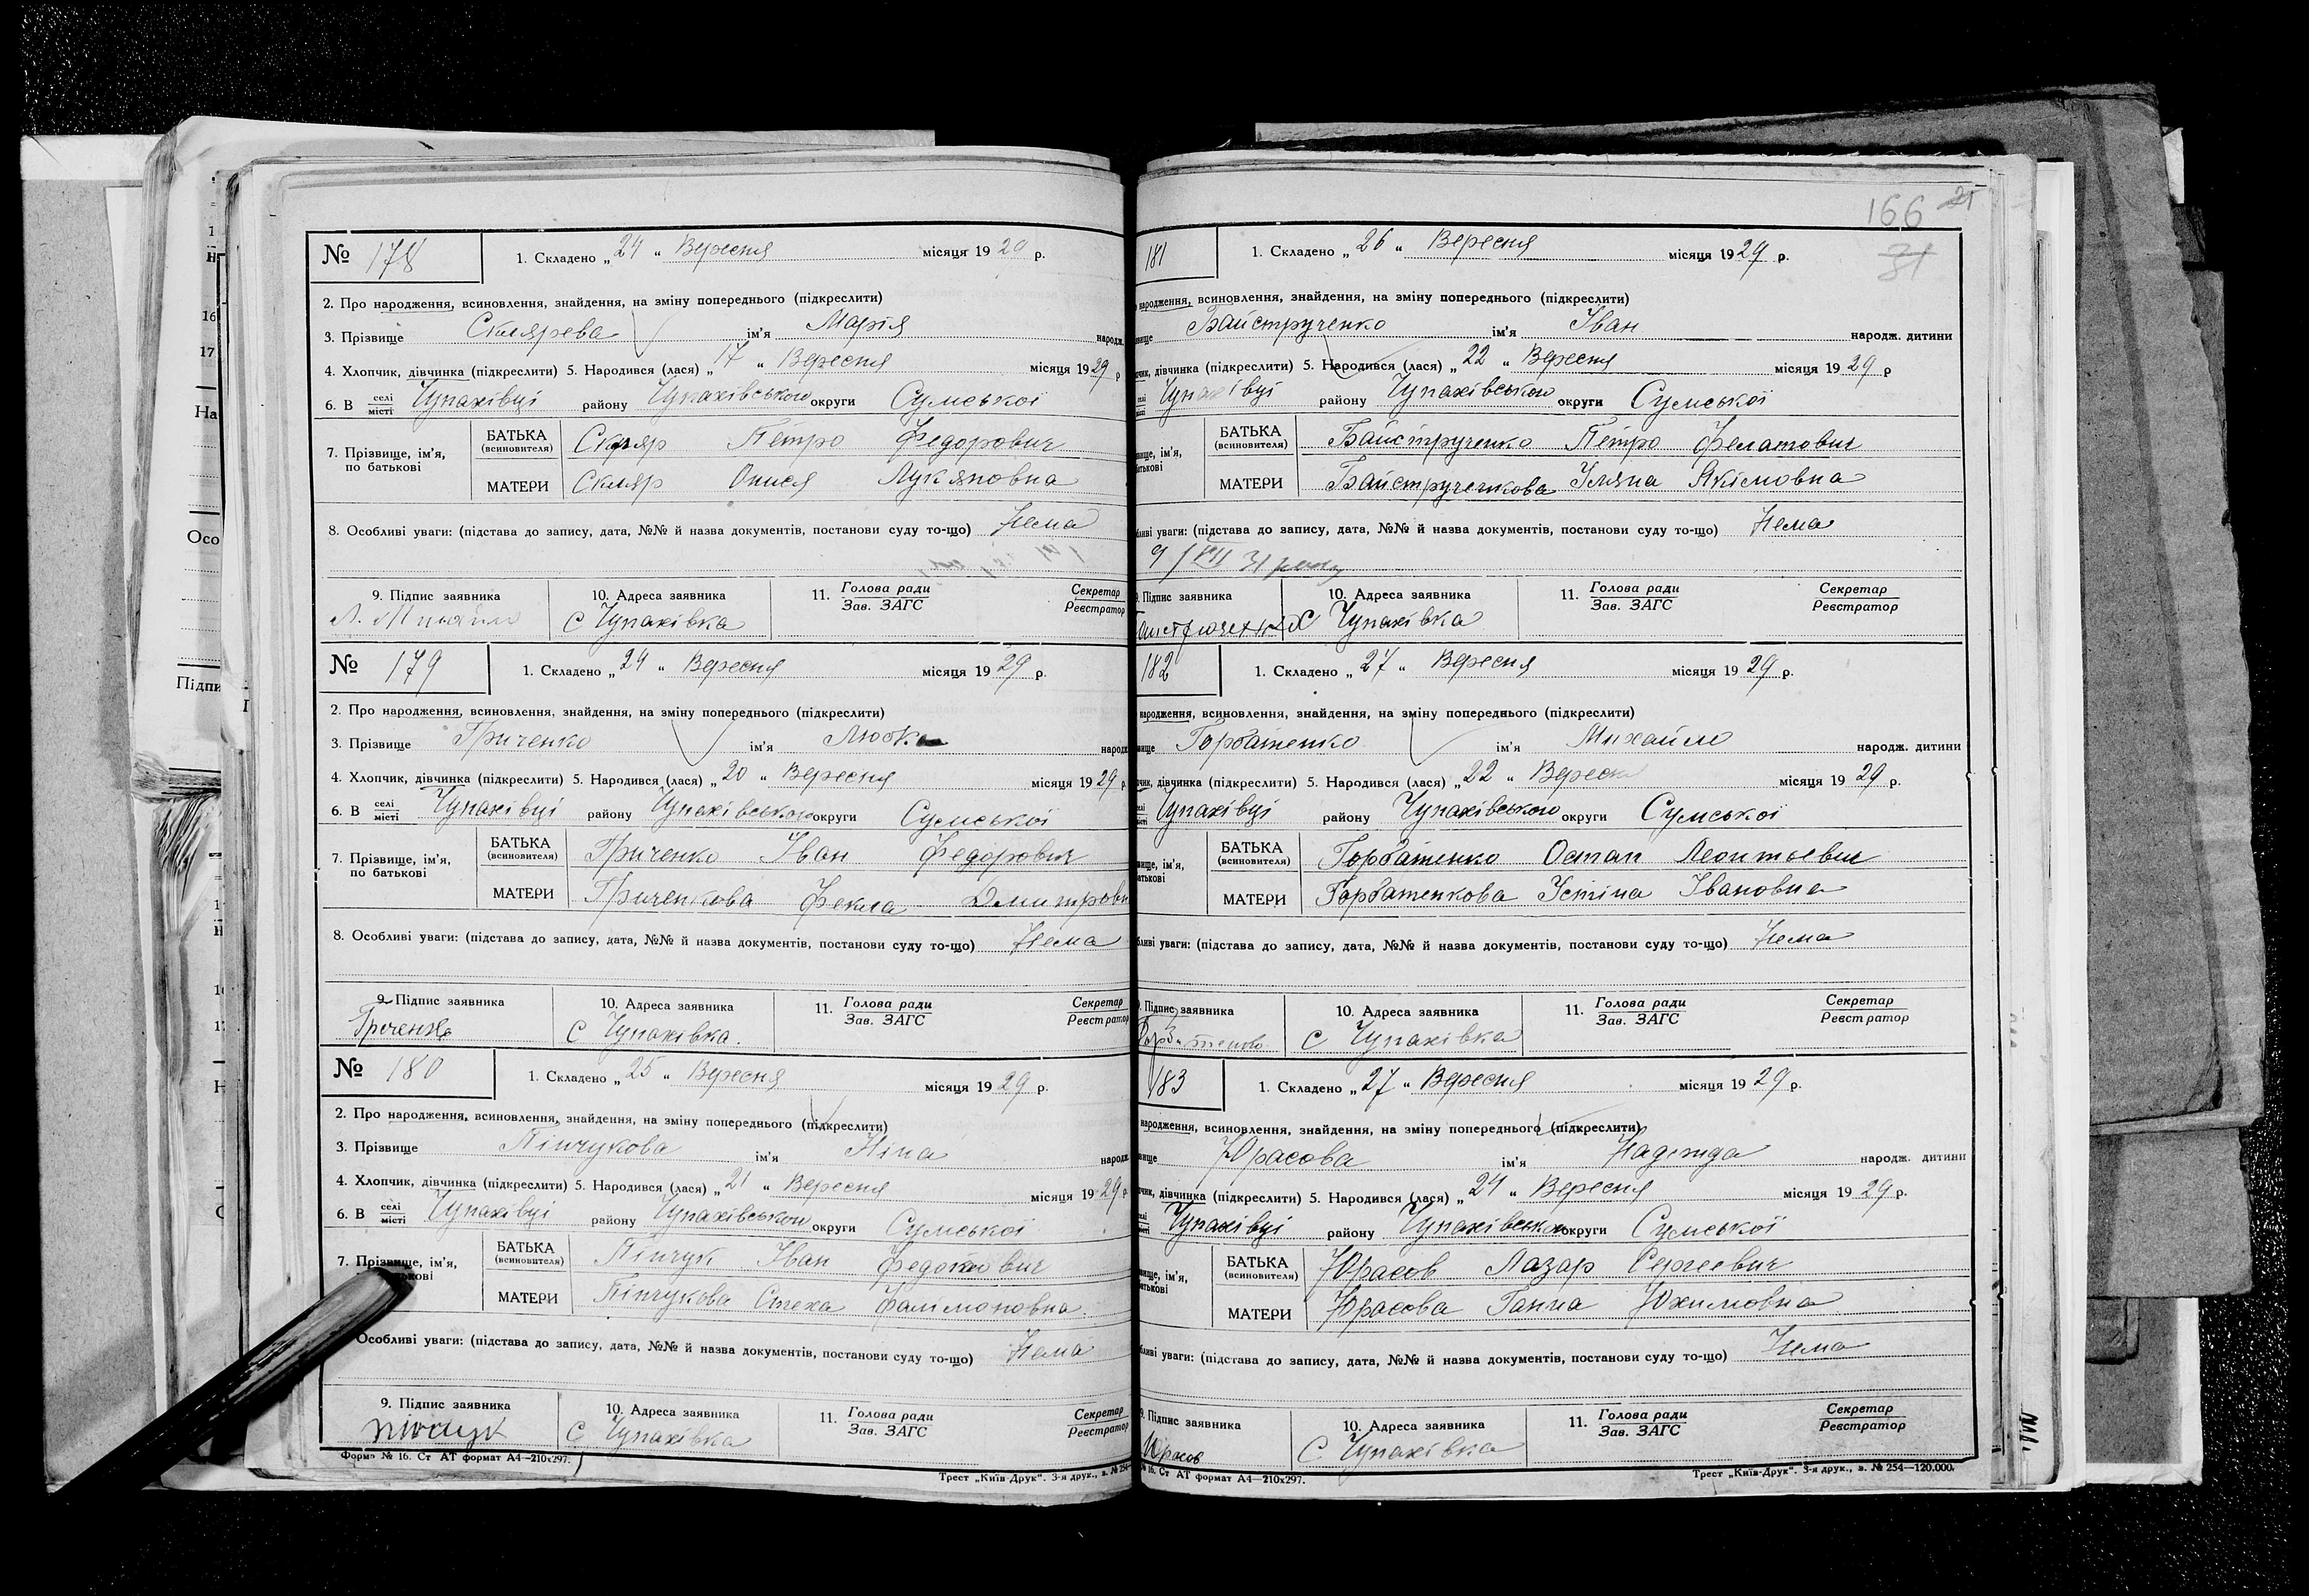 № 178
1. Складено „24“ Вересня місяця 1929 р.
2. Про народження, всиновлення, знайдення, на зміну попереднього (підкреслити)
3. Прізвище Склярева ім'я Марія народж.
4. Хлопчик, дівчинка (підкреслити) 5. Народився (лася) „17“ Вересня місяця 1929 р
6. В селі місті Чупахівці району Чупахівського округи Сумської
7. Прізвище, ім'я, по батькові
БАТЬКА (всиновителя) Скляр Петро Федорович
МАТЕРИ Скляр Онися Лукяновна
8. Особливі уваги: (підстава до запису, дата, №№ й назва документів, постанови суду то-що) Нема
9. Підпис заявника 10. Адреса заявника 11. Голова ради Зав. ЗАГС Секретар Реєстратор
С Чупахівка
№ 179
1. Складено „24“ Вересня місяця 1929 р.
2. Про народження, всиновлення, знайдення, на зміну попереднього (підкреслити)
3. Прізвище Гриченко ім'я Любка народж
4. Хлопчик, дівчинка (підкреслити) 5. Народився (лася) „20“ Вересня місяця 1929 р
6. В селі місті Чупахівці району Чупахівського округи Сумської
7. Прізвище, ім'я, по батькові
БАТЬКА (всиновителя) Гриченко Іван Федорович
МАТЕРИ Гриченкова Фекла Дмитровн
8. Особливі уваги: (підстава до запису, дата, №№ й назва документів, постанови суду то-що) Нема
9. Підпис заявника 10. Адреса заявника 11. Голова ради Зав. ЗАГС Секретар Реєстратор
С Чупахівка.
№ 180
1. Складено „25“ Вересня місяця 1929 р.
2. Про народження, всиновлення, знайдення, на зміну попереднього (підкреслити)
3. Прізвище Пінчукова ім'я Ніна народж
4. Хлопчик, дівчинка (підкреслити) 5. Народився (лася) „21“ Вересня місяця 1929 р.
6. В селі місті Чупахівці району Чупахівського округи Сумської
7. Прізвище, ім'я,
БАТЬКА (всиновителя) Пінчук Іван Федотович
МАТЕРИ Пінчукова Стеха Фалімоновна.
Особливі уваги: (підстава до запису, дата, №№ й назва документів, постанови суду то-що) Нема
9. Підпис заявника 10. Адреса заявника 11. Голова ради Зав. ЗАГС Секретар Реєстратор
пінчук С Чупахівка
Форма № 16. Ст АТ формат А4—210х297.
Трест „Київ-Друк“. 3-я друк., з. № 254
166 21
81
181
1. Складено „26“ Вересня місяця 1929 р.
народження, всиновлення, знайдення, на зміну попереднього (підкреслити)
Байструченко ім'я Іван народж. дитини
дівчинка (підкреслити) 5. Народився (лася) „22“ Вересня місяця 1929 р
Чупахівці району Чупахівського округи Сумської
БАТЬКА (всиновителя) Байструченко Петро Філатович
МАТЕРИ Байструченкова Уляна Якімовна
уваги: (підстава до запису, дата, №№ й назва документів, постанови суду то-що) Нема
9/VII 31 року
Підпис заявника 10. Адреса заявника 11. Голова ради Зав. ЗАГС Секретар Реєстратор
С Чупахівка
182
1. Складено „27“ Вересня місяця 1929 р.
народження, всиновлення, знайдення, на зміну попереднього (підкреслити)
Горбатенко ім'я Михайло народж. дитини
дівчинка (підкреслити) 5. Народився (лася) „22“ Вересня місяця 1929 р.
Чупахівці району Чупахівського округи Сумської
БАТЬКА (всиновителя) Горбатенко Остап Леонтьевич
МАТЕРИ Горбатенкова Устіна Івановна
уваги: (підстава до запису, дата, №№ й назва документів, постанови суду то-що) Нема
Підпис заявника 10. Адреса заявника 11. Голова ради Зав. ЗАГС Секретар Реєстратор
С Чупахівка
183
1. Складено „27“ Вересня місяця 1929 р.
народження, всиновлення, знайдення, на зміну попереднього (підкреслити)
Юрасова ім'я Надежда народж. дитини
дівчинка (підкреслити) 5. Народився (лася) „24“ Вересня місяця 1929 р.
Чупахівці району Чупахівського округи Сумської
БАТЬКА (всиновителя) Юрасов Лазар Сергеевич
МАТЕРИ Юрасова Ганна Юхимовна
уваги: (підстава до запису, дата, №№ й назва документів, постанови суду то-що) Нема
Підпис заявника 10. Адреса заявника 11. Голова ради Зав. ЗАГС Секретар Реєстратор
Юрасов С Чупахівка
16. Ст АТ формат А4—210х297.
Трест „Київ-Друк“. 3-я друк., з. № 254—120.000.